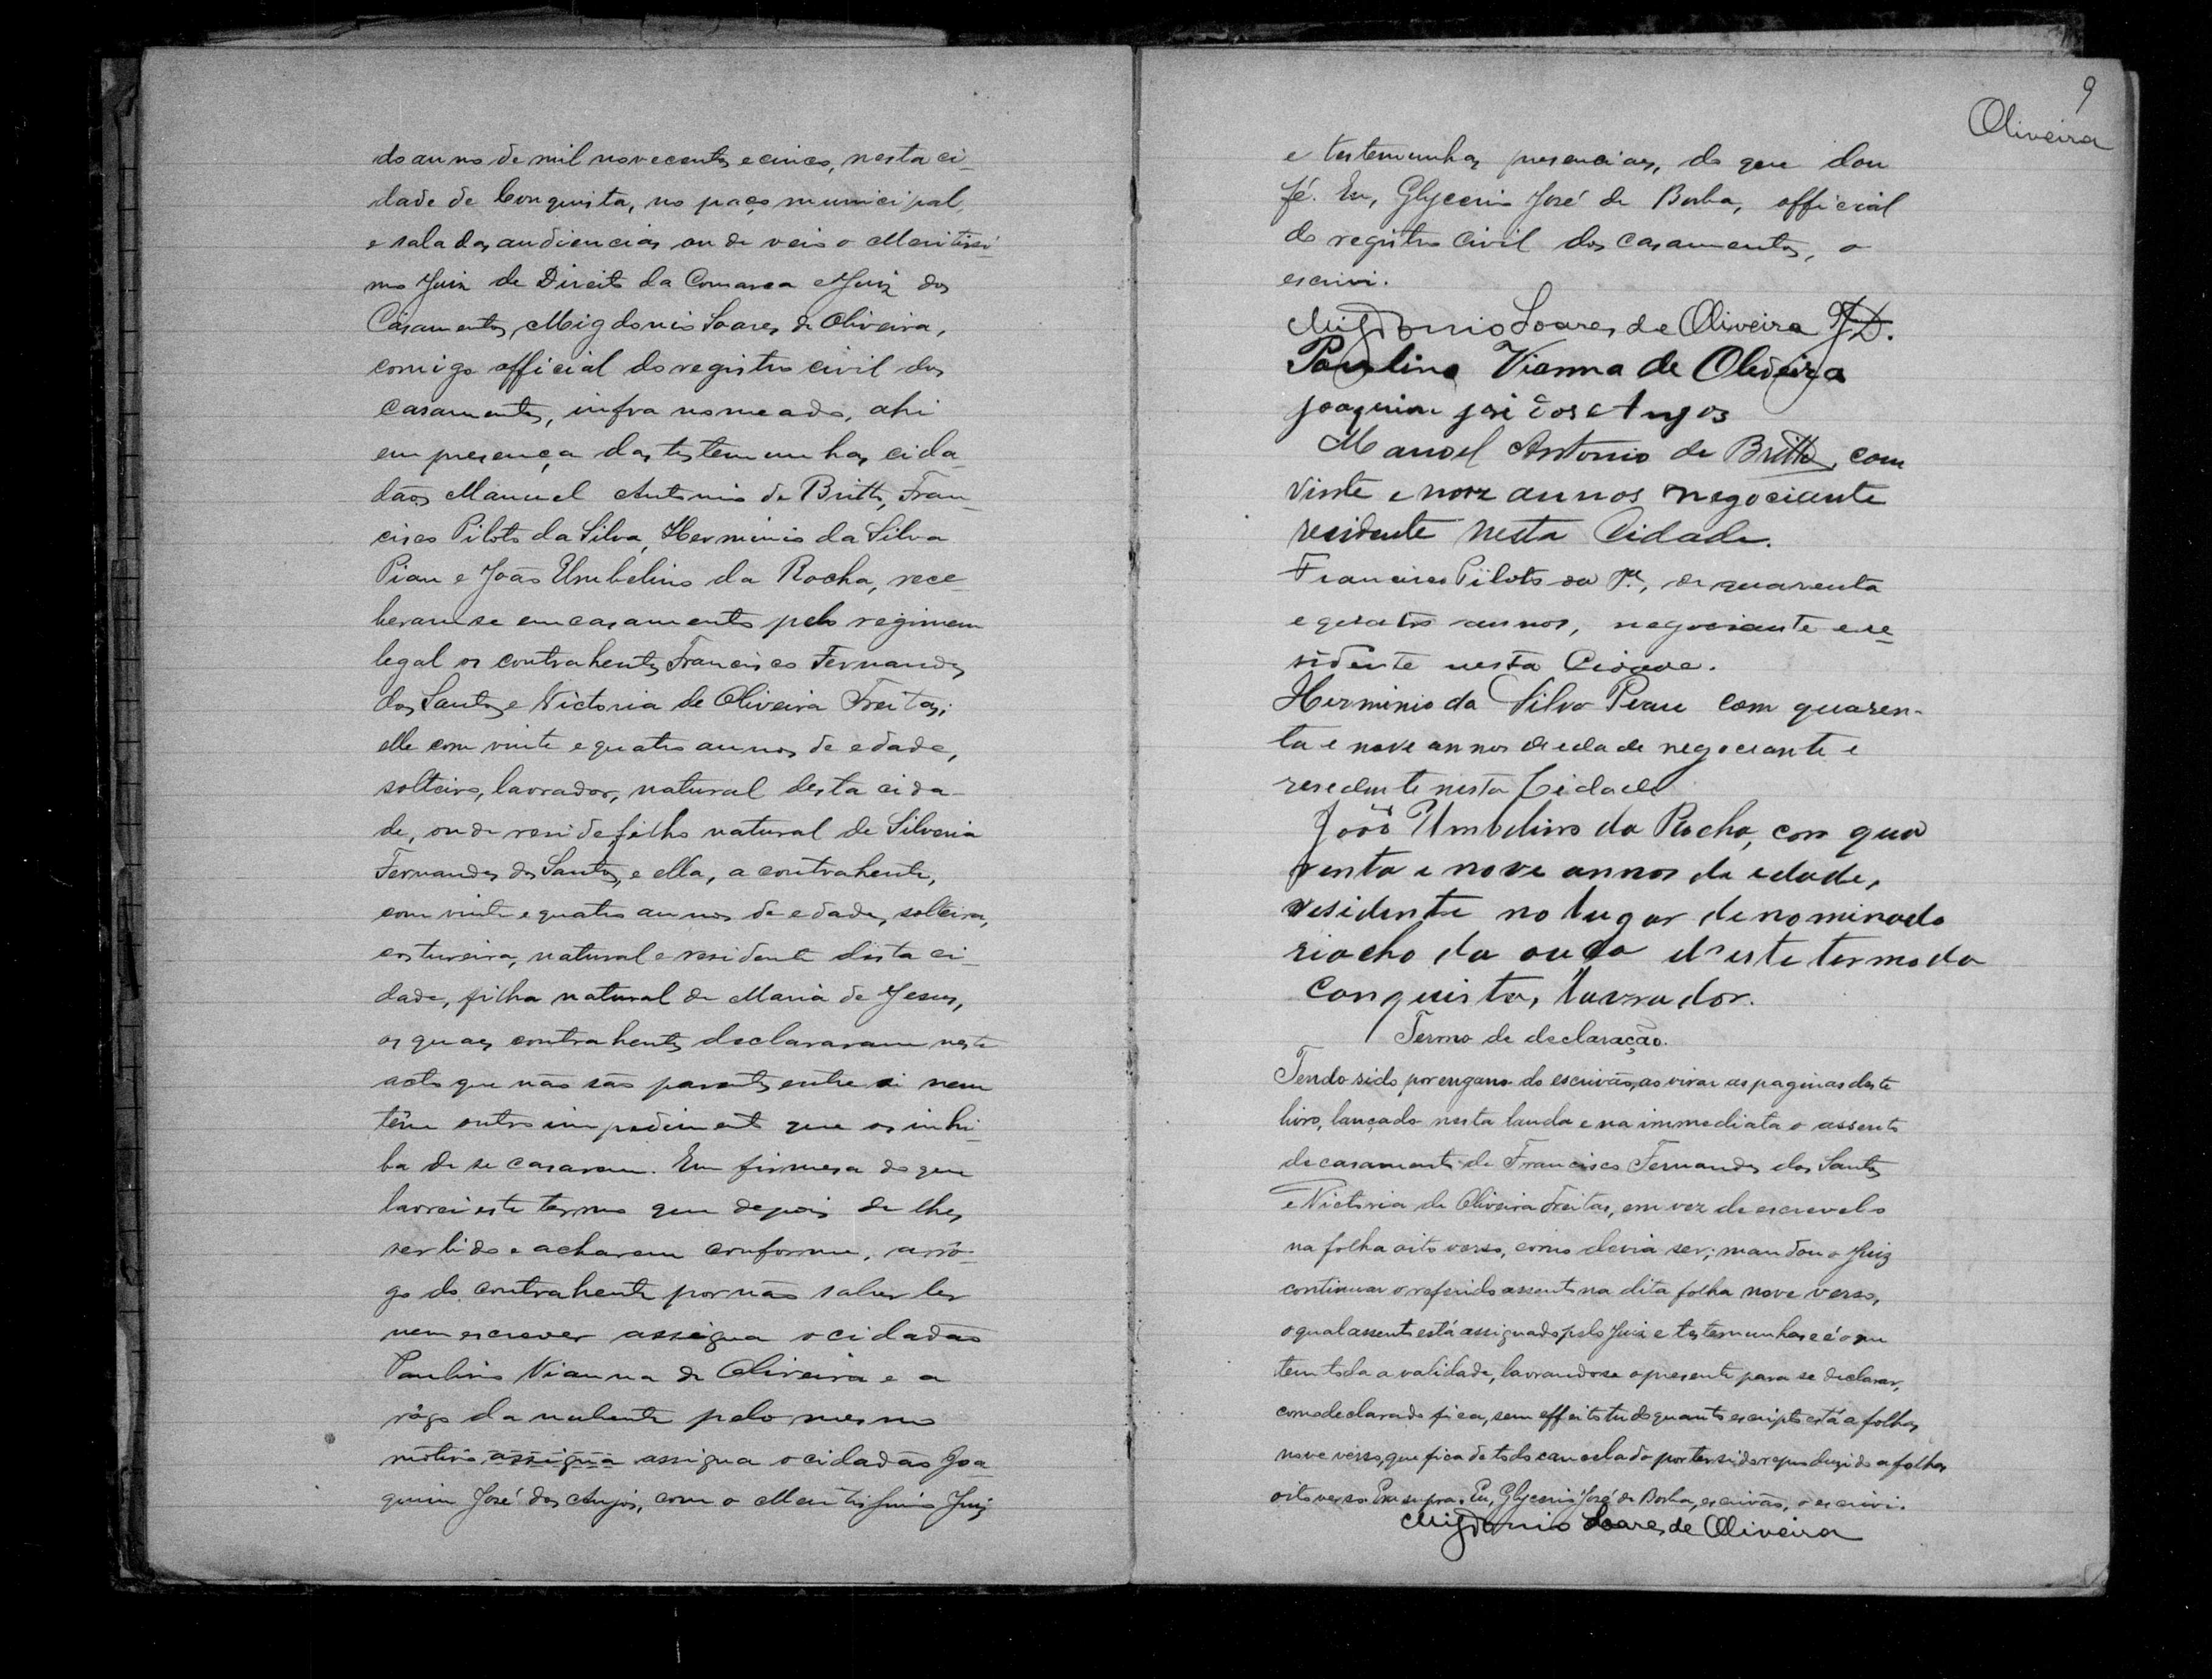 do anno de mil novecentos e cinco, nesta ci-
dade de Conquista, no paço municipal,
e sala das audiencias onde veio o Meritissi-
mo Juiz de Direito da Comarca e Juiz dos
Casamentos, Migdonio Soares de Oliveira,
comigo official do registro civil dos
casamentos, infra nomeado, ahi
em presença das testemunhas cida-
dãos Manuel Antonio de Britto, Fran-
cisco Piloto da Silva, Herminio da Silva
Piau e João Umbelino da Rocha, rece-
beram se em casamento pelo regimem
legal os contrahentes Francisco Fernandes
dos Santos e Victoria de Oliveira Freitas;
elle com vinte e quatro annos de edade,
solteiro, lavrador, natural desta cida-
de, onde reside, filho natural de Silveria
Fernandes dos Santos, e ella, a contrahente,
com vinte e quatro annos de edade, solteira,
costureira, natural e residente desta ci-
dade, filha natural de Maria de Jesus,
os quaes contrahentes declararam neste
acto que não são parentes entre si nem
têm outro impedimento que os inhi-
ba de se casarem. Em firmesa do que
lavrei este termo que depois de lhes
ser lido e acharem conforme, a rô-
go do contrahente por não saber ler
nem escrever assigna o cidadão
Paulino Vianna de Oliveira e a
rôgo da nubente pelo mesmo
motivo assigna assigna o cidadão Joa-
quim José dos Anjos, com o Meritissimo Juiz
9
Oliveira
e testemunhas presenciaes, do que dou
fé. Eu, Glycerio José de Borba, official
do registro civil dos casamentos, o
escrivi.
Migdonio Soares de Oliveira J.D.
Paulino Vianna de Oliveira
joaquim josé dos Anjos
Manoel Antonio de Britto, com
vinte e nove annos negociante
residente nesta Cidade.
Francisco Piloto da Sª, de quarenta
e quatro annos, negociante e re-
sidente nesta Cidade.
Herminio da Silva Piau com quaren-
ta e nove annos de edade negociante e
resedente nesta Cidade
João Umbelino da Rocha, com qua
renta e nove annos de edade,
residente no lugar denominado
riacho da d'este termo da
Conquista, lavrador.
Termo de declaração.
Tendo sido, por engano do escrivão, ao virar as paginas deste
livro, lançado nesta lauda e na immediata o assento
de casamento de Francisco Fernandes dos Santos
e Victoria de Oliveira Freitas, em vez de escrevel-o
na folha oito verso, como devia ser; mandou o Juiz
continuar o referido assento na dita folha nove verso,
o qual assento está assignado pelo Juiz e testemunhas e é o que
tem toda a validade, lavrando-se o presente para se declarar,
como declarado fica, sem effeito tudo quanto escripto está a folhas
nove verso, que fica de todo cancelado por ter sido reproduzido a folhas
oito verso. Era supra. Eu, Glycerio José de Borba, escrivão, o escrivi.
Migdonio Soares de Oliveira